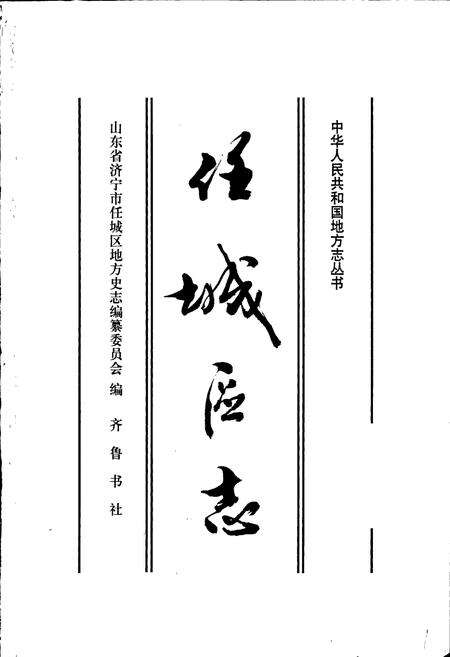 中华人民共和国地方志丛书
任城区志
山东省济宁市任城区地方史志编纂委员会 编 齐鲁书社